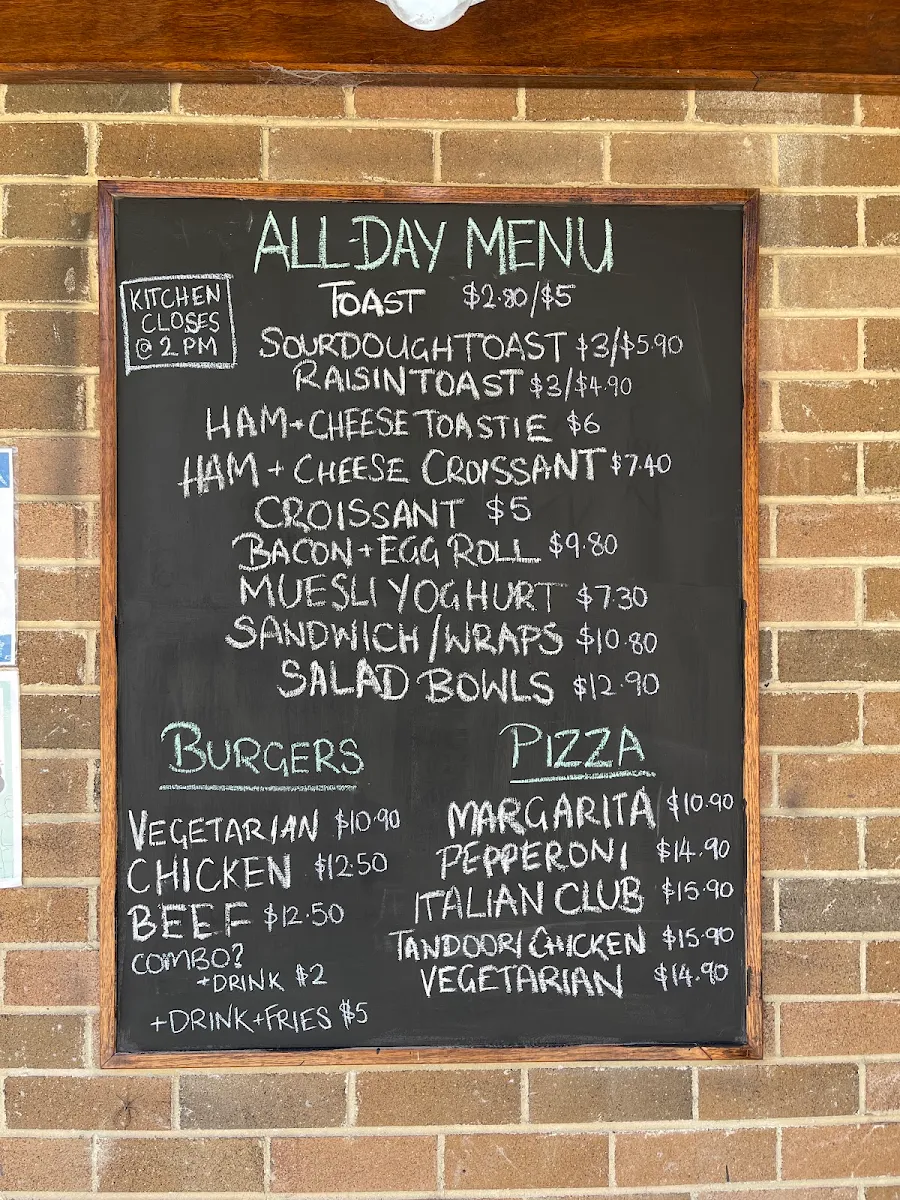 ALL-DAY MENU
KITCHEN
CLOSES
@ 2 PM
TOAST $2.80/$5
SOURDOUGH TOAST $3/$5.90
RAISIN TOAST $3/$4.90
HAM + CHEESE TOASTIE $6
HAM + CHEESE CROISSANT $7.40
CROISSANT $5
BACON + EGG ROLL $9.80
MUESLI YOGHURT $7.30
SANDWICH/WRAPS $10.80
SALAD BOWLS $12.90
BURGERS
VEGETARIAN $10.90
CHICKEN $12.50
BEEF $12.50
COMBO?
+DRINK $2
+DRINK+FRIES $5
PIZZA
MARGARITA $10.90
PEPPERONI $14.90
ITALIAN CLUB $15.90
TANDOORI CHICKEN $15.90
VEGETARIAN $14.90